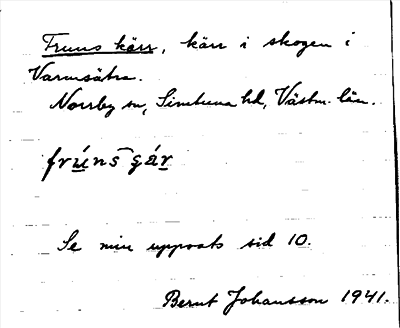 Fruns kärr, kärr i skogen i
Varmsätra.
Norrby sn, Simtuna hd, Västm. län.
frúns gár
Se min uppsats sid 10.
Bernt Johansson 1941.